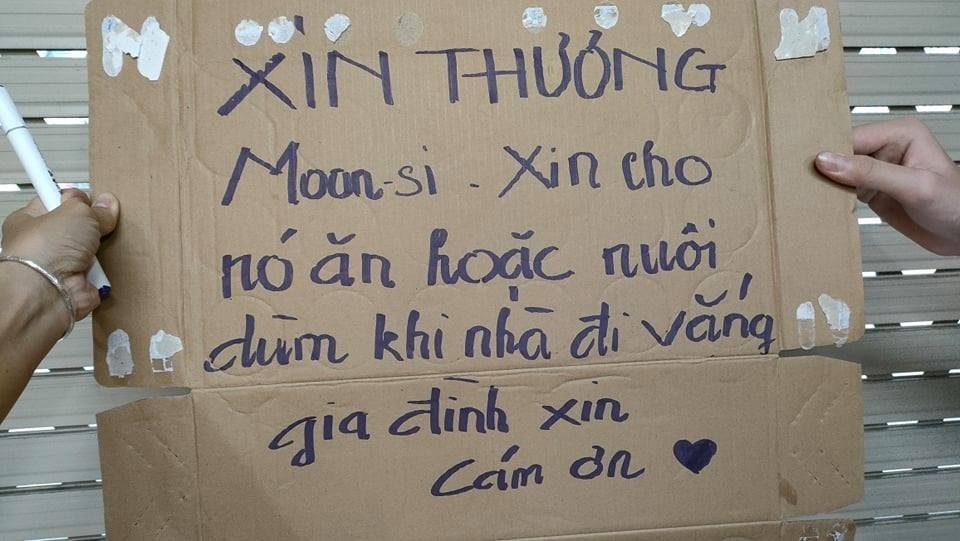 XIN THƯƠNG
Moon-si. Xin cho
nó ăn hoặc nuôi
dùm khi nhà đi vắng
gia đình xin
cám ơn ♥